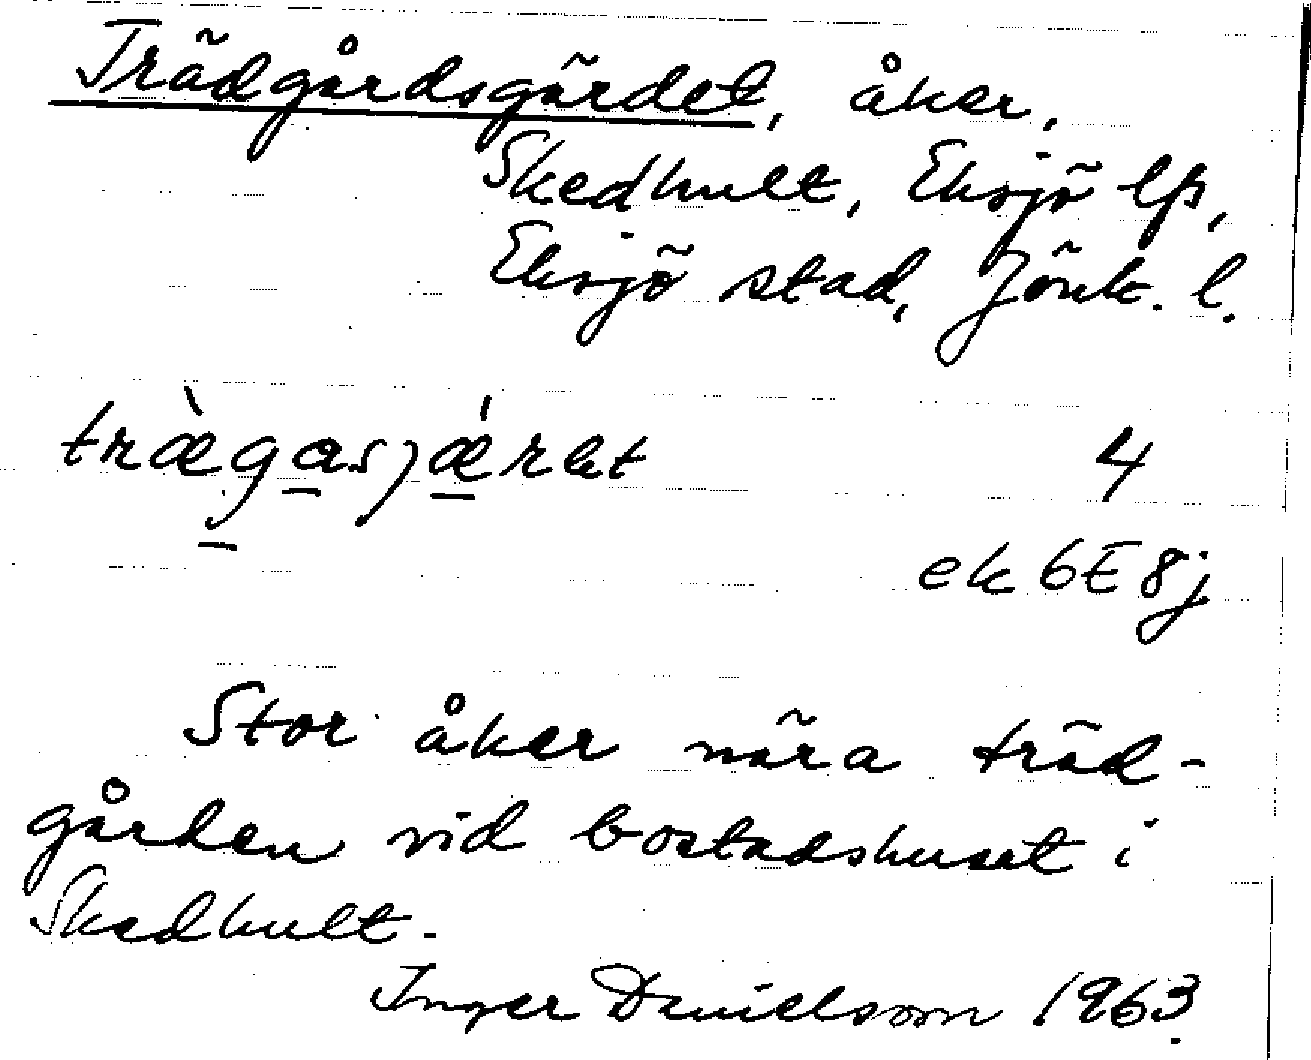 Trädgårdsgärdet, åker,
Skedhult, Eksjö lfs,
Eksjö stad, Jönk. l.
træ̀gasjǽrdet 4
ek 6E8j
Stor åker nära träd-
gården vid bostadshuset i
Skedhult.
Inger Danielsson 1963